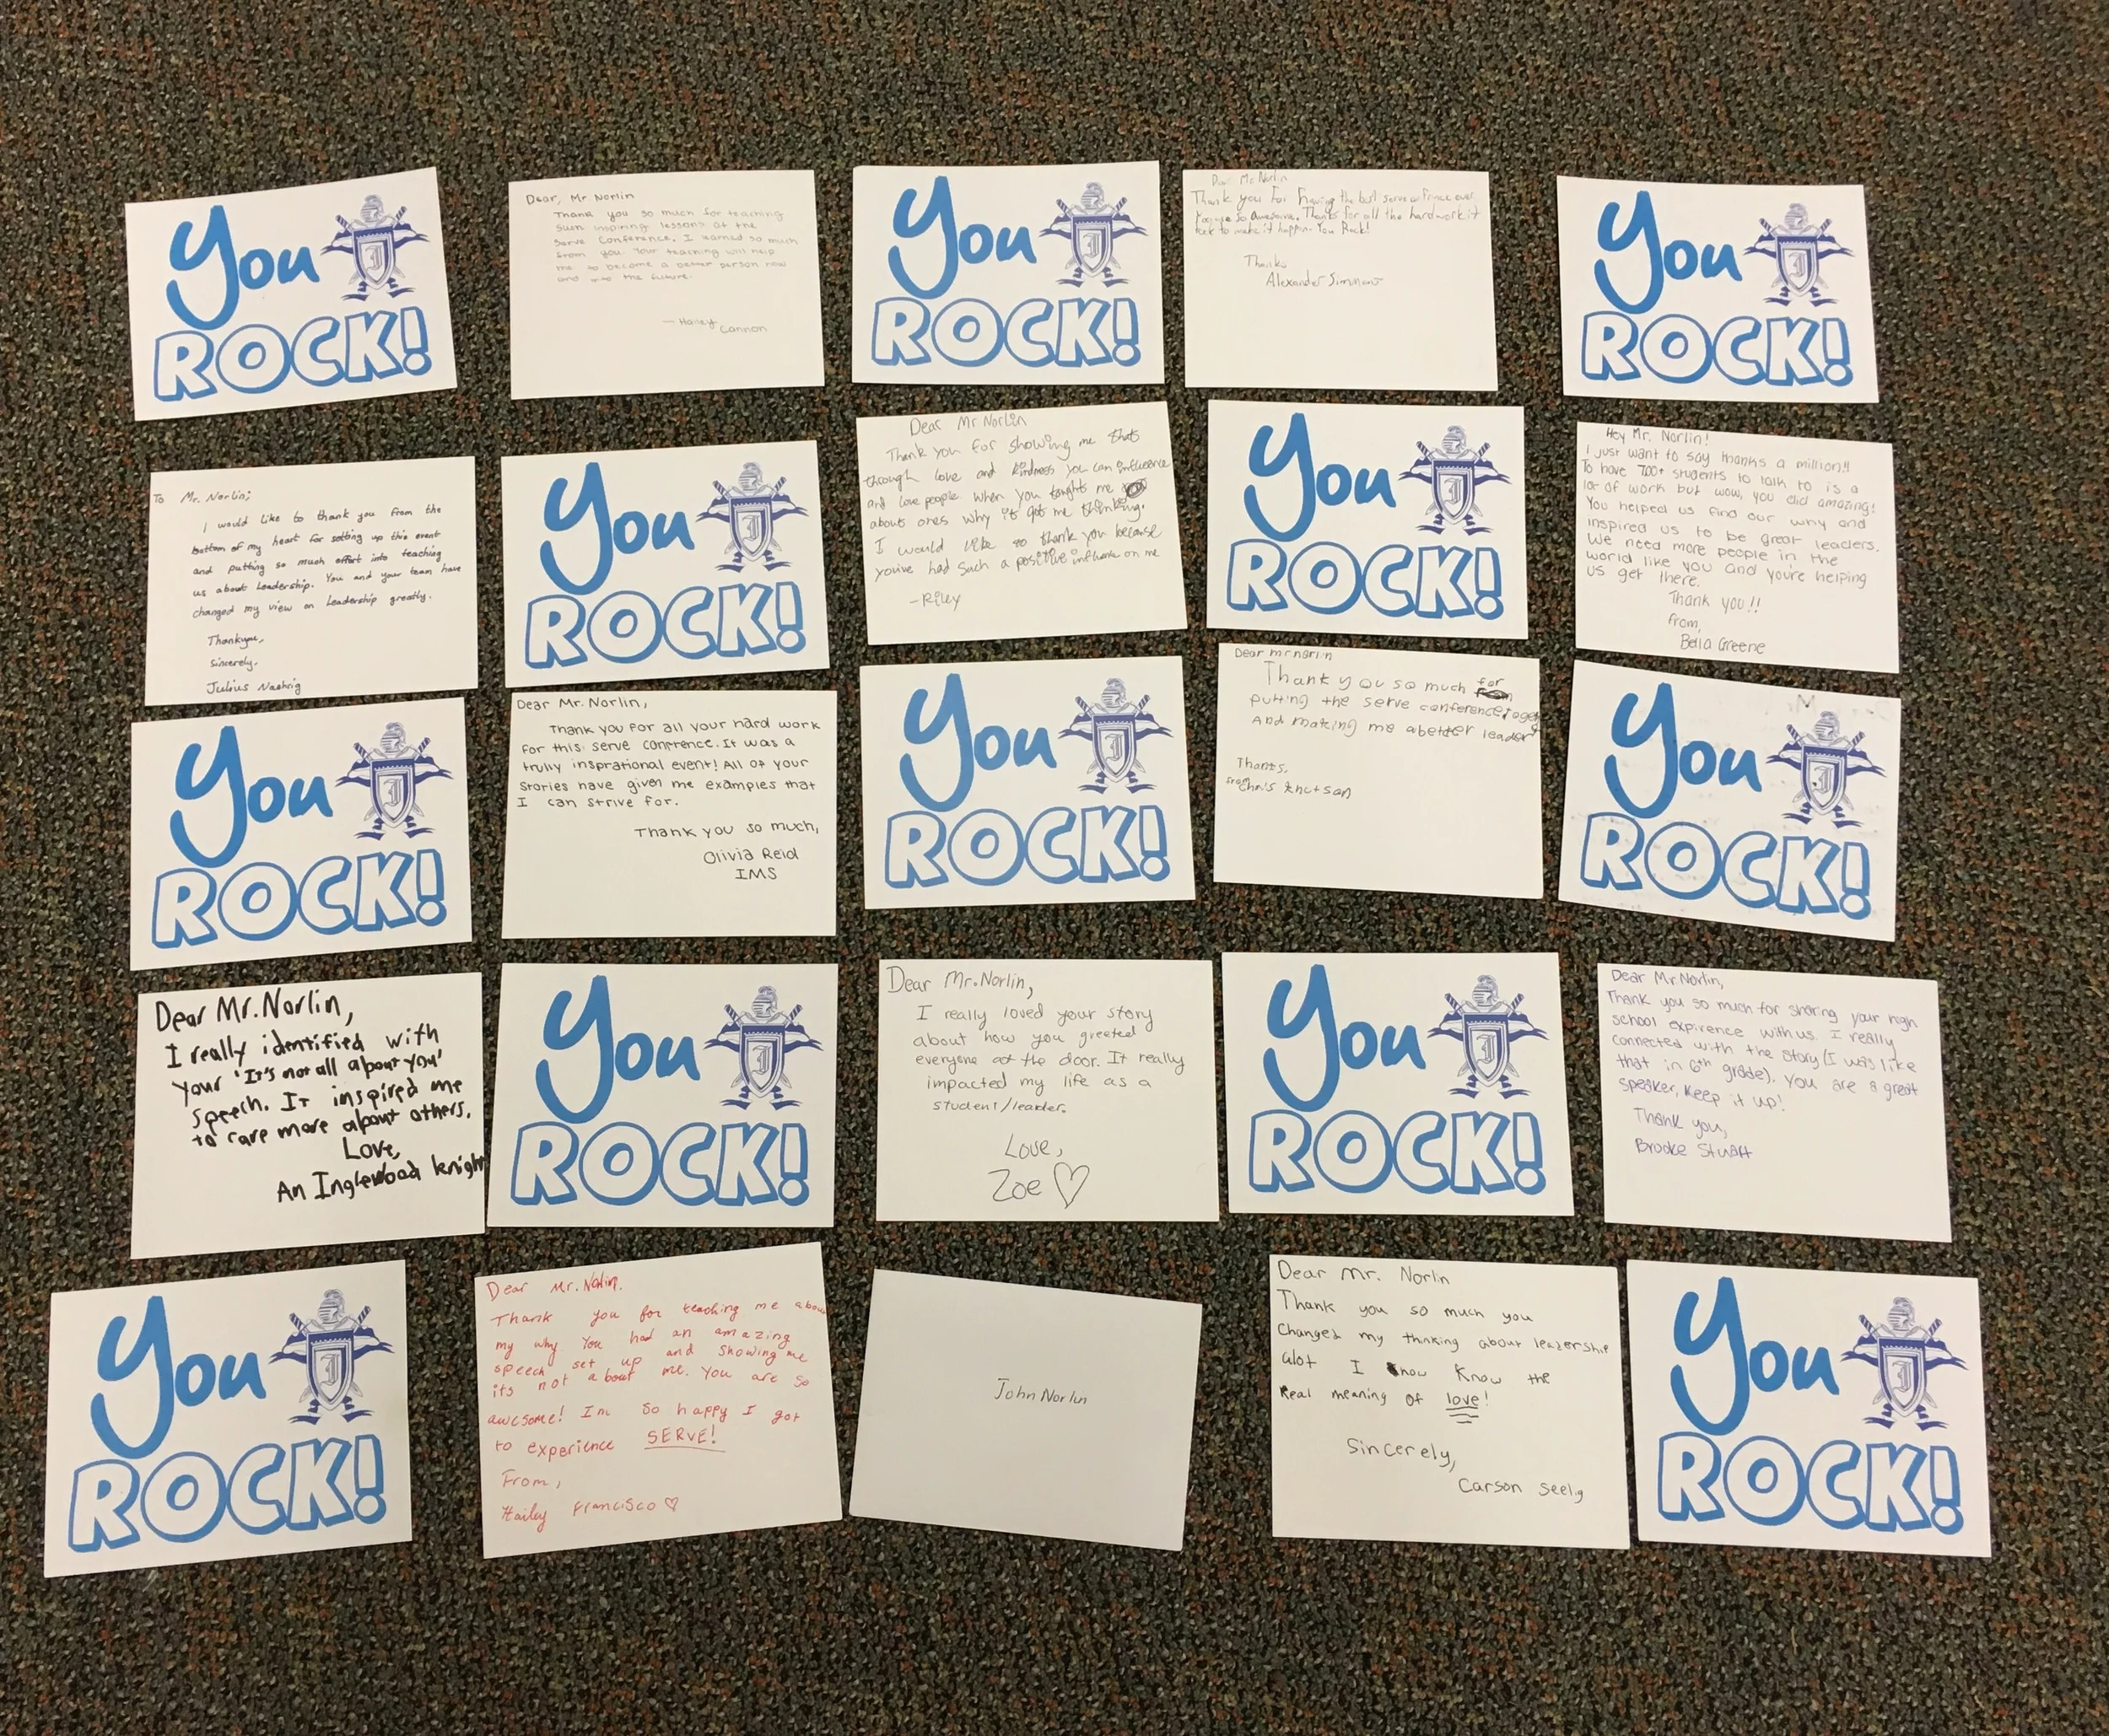 You
ROCK!
Dear, Mr Norlin
Thank you so much for teaching
such inspiring lessons at the
Serve Conference. I learned so much
from you. Your teaching will help
me to become a better person now
and the future.
— Hailey
Cannon
You
ROCK!
Dear Mr Norlin
Thank you for having the best serve ever
so awesome. Thanks for all the hard work it
took to make it happin. You Rock!
Thanks
Alexander
You
ROCK!
To Mr. Norlin;
I would like to thank you from the
bottom of my heart for setting up this event
and putting so much effort into teaching
us about Leadership. You and your team have
changed my view on Leadership greatly.
Thankyou,
Sincerely,
Julius
You
ROCK!
Dear Mr Norlin
Thank you for showing me that
through love and kindness you can influence
and love people. When you taught me
about ones why it got me thinking.
I would like to thank you because
youive had such a positive influence on me
-Riley
You
ROCK!
Hey Mr. Norlin!
I just want to say thanks a million!!
To have 700+ students to talk to is a
lot of work but wow, you did amazing!
You helped us find our why and
inspired us to be great leaders.
We need more people in the
world like you and you're helping
us get there.
Thank you!!
from,
Bella Greene
You
ROCK!
Dear Mr. Norlin,
Thank you for all your hard work
for this serve confrence. It was a
trully insprational event! All of your
stories have given me examples that
I can strive for.
Thank you so much,
Olivia Reid
IMS
You
ROCK!
Dear mr norlin
Thank you so much for
putting the serve conference
And making me abetter leader
Thanks,
from
Chris Knutson
You
ROCK!
Dear Mr. Norlin,
I really identified with
your 'It's not all about you'
speech. It inspired me
to care more about others.
Love,
An Inglewood knight
You
ROCK!
Dear Mr. Norlin,
I really loved your story
about how you greeted
everyone at the door. It really
impacted my life as a
student/leader.
Love,
Zoe ♡
You
ROCK!
Dear Mr Norlin,
Thank you so much for sharing your high
school expirence with us. I really
connected with the story (I was like
that in 6th grade). You are a great
speaker, keep it up!
Thank you,
Brooke Stuart
You
ROCK!
Dear Mr. Norlin,
Thank you for teaching me about
my why You had an amazing
speech set up and showing me
its not about me. You are so
awesome! Im so happy I got
to experience SERVE!
From,
Hailey Francisco ♡
John Norlin
Dear Mr. Norlin
Thank you so much you
changed my thinking about leadership
alot I now Know the
Real meaning of love!
Sincerely,
Carson Seelig
You
ROCK!